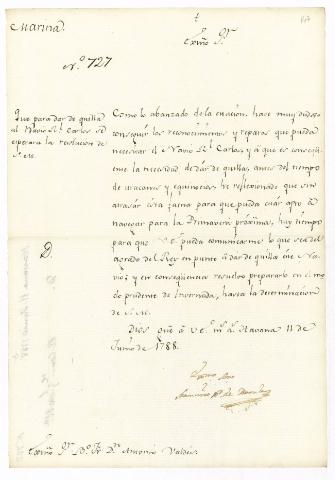 Marina.
†
Exmõ Sr.
N.º 727
Que para dar de quilla
al Navio Sn. Carlos se
esperara la resolucion de
S. M.
Como lo abanzado de la estacion, hace muy dudoso
conseguir los reconocimientos y reparos que pueda
necesitar el Navio Sn. Carlos, y á que es consiguien-
te la necesidad de dar de quilla, antes del tiempo
de uracanes y equinocios: he reflexionado que sin
atrasar esta faena para que pueda estár apto á
navegar para la Primavera próxima, hay tiempo
para que V. E. pueda comunicarme lo que sea del
agrado del Rey en punto á dar de quilla este Na-
vio; y en consequencia resuelvo prepararlo en el mo-
do prudente de Invernada, hasta la determinacion
de S. M.
D.
Dios gũe á V. E. ms. as. Havana 11 de
Junio de 1788.
Exmo Sor
Exmõ Sr. Bo. Fr. Dn. Antonio Valdés.